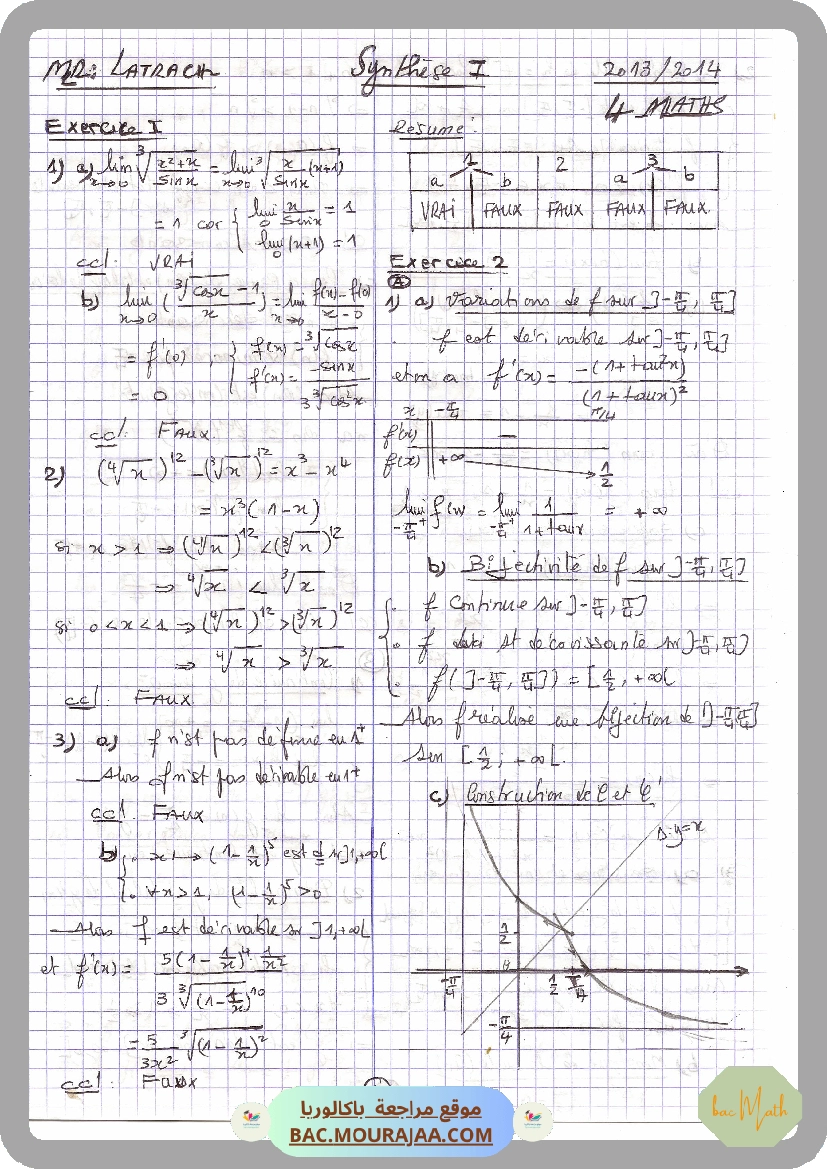 MR: LATRACH
Synthèse I
2013/2014
4 MATHS
Exercice I
1) a) lim x→0 ∛((x²+x)/sinx) = lim x→0 ∛(x/sinx (x+1))
= 1 car { lim 0 x/sinx = 1
lim 0 (x+1) = 1
ccl: VRAI
b) lim x→0 ((∛cosx − 1)/x) = lim x→0 (f(x)−f(0))/(x−0)
= f'(0) ; { f(x) = ∛cosx
f'(x) = −sinx/(3∛cos²x)
= 0
ccl: FAUX.
2) (⁴√x)¹² − (∛x)¹² = x³ − x⁴
= x³(1−x)
si x > 1 ⇒ (⁴√x)¹² < (∛x)¹²
⇒ ⁴√x < ∛x
si 0<x<1 ⇒ (⁴√x)¹² > (∛x)¹²
⇒ ⁴√x > ∛x
ccl: FAUX
3) a) f n'est pas définie en 1⁺
Alors f n'est pas dérivable en 1⁺
ccl: FAUX
b) { . x ↦ (1−1/x)⁵ est d sr ]1,+∞[
. ∀x>1, (1−1/x)⁵ > 0
Alors f est dérivable sr ]1,+∞[
et f'(x) = 5(1−1/x)⁴ 1/x² / 3∛(1−1/x)¹⁰
= 5/3x² ∛(1−1/x)²
ccl: Faux
Résumé:
1 2 3
a b a b
VRAI FAUX FAUX FAUX FAUX
Exercice 2
A
1) a) Variations de f sur ]-π/4, π/4]
. f est dérivable sur ]-π/4, π/4]
et on a f'(x) = −(1+tan²x)/(1+tanx)²
x -π/4 π/4
f'(x) −
f(x) +∞ 1/2
lim -π/4⁺ f(x) = lim -π/4⁺ 1/(1+tanx) = +∞
b) Bijectivité de f sur ]-π/4, π/4]
. f Continue sur ]-π/4, π/4]
. f St décroissante sr ]-π/4, π/4]
. f(]-π/4, π/4]) = [1/2, +∞[
Alors f réalise une bijection de ]-π/4, π/4]
sur [1/2; +∞[.
c) Construction de C et C'
Δ: y=x
1/2
-π/4 1/2 π/4
-π/4
موقع مراجعة باكالوريا
BAC.MOURAJAA.COM
bac Math